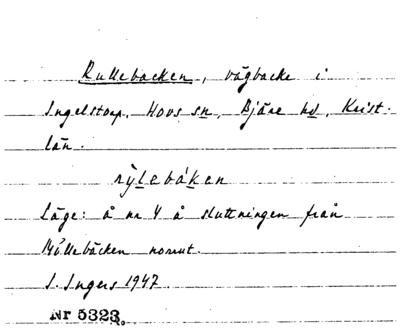 Rullebacken, vägbacke i
Ingelstorp, Hovs sn, Bjäre hd, Krist.
län.
rỳlebák̀en
Läge: å nr 4 å sluttningen från
Möllebäcken norrut.
I. Ingers 1947.
Nr 5323.